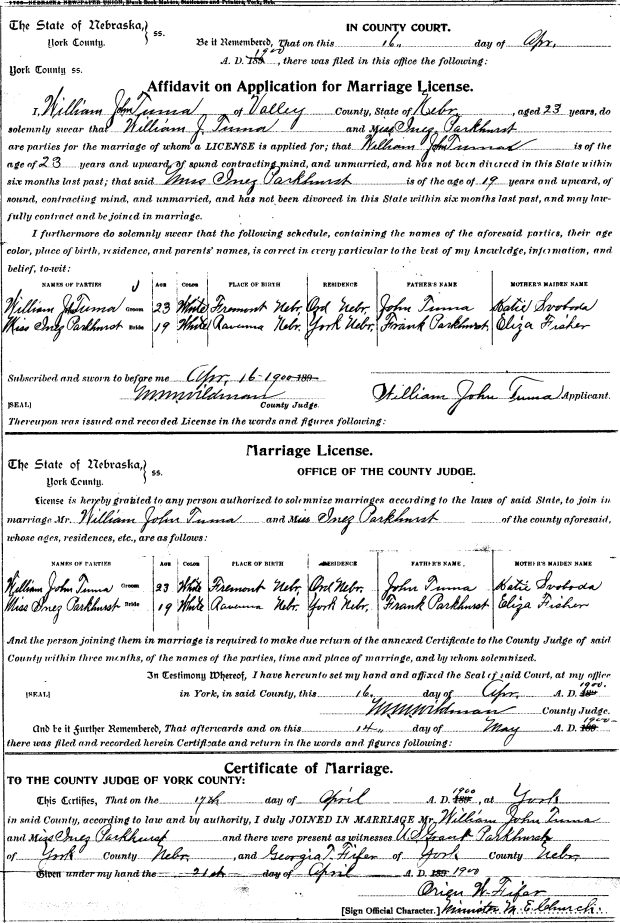 1700—NEBRASKA NEWSPAPER UNION, Blank Book Makers, Stationers and Printers, York, Neb.
The State of Nebraska, } ss. IN COUNTY COURT.
York County. Be it Remembered, That on this 16. day of Apr,
A. D. 189 1900, there was filed in this office the following:
York County ss.
Affidavit on Application for Marriage License.
I, William John Tuma of Valley County, State of Nebr, aged 23 years, do
solemnly swear that William J. Tuma and Miss Inez Parkhurst
are parties for the marriage of whom a LICENSE is applied for; that William John Tumas is of the
age of 23 years and upward, of sound contracting mind, and unmarried, and has not been divorced in this State within
six months last past; that said Miss Inez Parkhurst is of the age of 19 years and upward, of
sound, contracting mind, and unmarried, and has not been divorced in this State within six months last past, and may law-
fully contract and be joined in marriage.
I furthermore do solemnly swear that the following schedule, containing the names of the aforesaid parties, their age
color, place of birth, residence, and parents' names, is correct in every particular to the best of my knowledge, information, and
belief, to-wit:
NAMES OF PARTIES AGE COLOR PLACE OF BIRTH RESIDENCE FATHER'S NAME MOTHER'S MAIDEN NAME
William Jno Tuma Groom 23 White Fremont Nebr. Ord Nebr. John Tuma Katie Svoboda
Miss Inez Parkhurst Bride 19 White Ravenna Nebr. York Nebr. Frank Parkhurst Eliza Fisher
Subscribed and sworn to before me Apr, 16-1900 189
W M Wildman William John Tuma Applicant.
[SEAL] County Judge.
Thereupon was issued and recorded License in the words and figures following:
Marriage License.
The State of Nebraska, } ss. OFFICE OF THE COUNTY JUDGE.
York County.
License is hereby granted to any person authorized to solemnize marriages according to the laws of said State, to join in
marriage Mr. William John Tuma and Miss Inez Parkhurst of the county aforesaid,
whose ages, residences, etc., are as follows:
NAMES OF PARTIES AGE COLOR PLACE OF BIRTH RESIDENCE FATHER'S NAME MOTHER'S MAIDEN NAME
William John Tuma Groom 23 White Fremont Nebr. Ord Nebr. John Tuma Katie Svoboda
Miss Inez Parkhurst Bride 19 White Ravenna Nebr. York Nebr. Frank Parkhurst Eliza Fisher
And the person joining them in marriage is required to make due return of the annexed Certificate to the County Judge of said
County within three months, of the names of the parties, time and place of marriage, and by whom solemnized.
In Testimony Whereof, I have hereunto set my hand and affixed the Seal of said Court, at my office
[SEAL] in York, in said County, this 16. day of Apr, A. D. 189 1900.
W M Wildman County Judge.
And be it Further Remembered, That afterwards and on this 14 day of May A. D. 189 1900
there was filed and recorded herein Certificate and return in the words and figures following:
Certificate of Marriage.
TO THE COUNTY JUDGE OF YORK COUNTY:
This Certifies, That on the 17th day of April A. D. 189 1900, at York
in said County, according to law and by authority, I duly JOINED IN MARRIAGE Mr. William John Tuma
and Miss Inez Parkhurst and there were present as witnesses U.S. Grant Parkhurst
of York County Nebr, and Georgia T. Fifer of York County Nebr
Given under my hand the 21st day of April A. D. 189 1900
Orien W. Fifer
[Sign Official Character.] Minister M. E. Church.